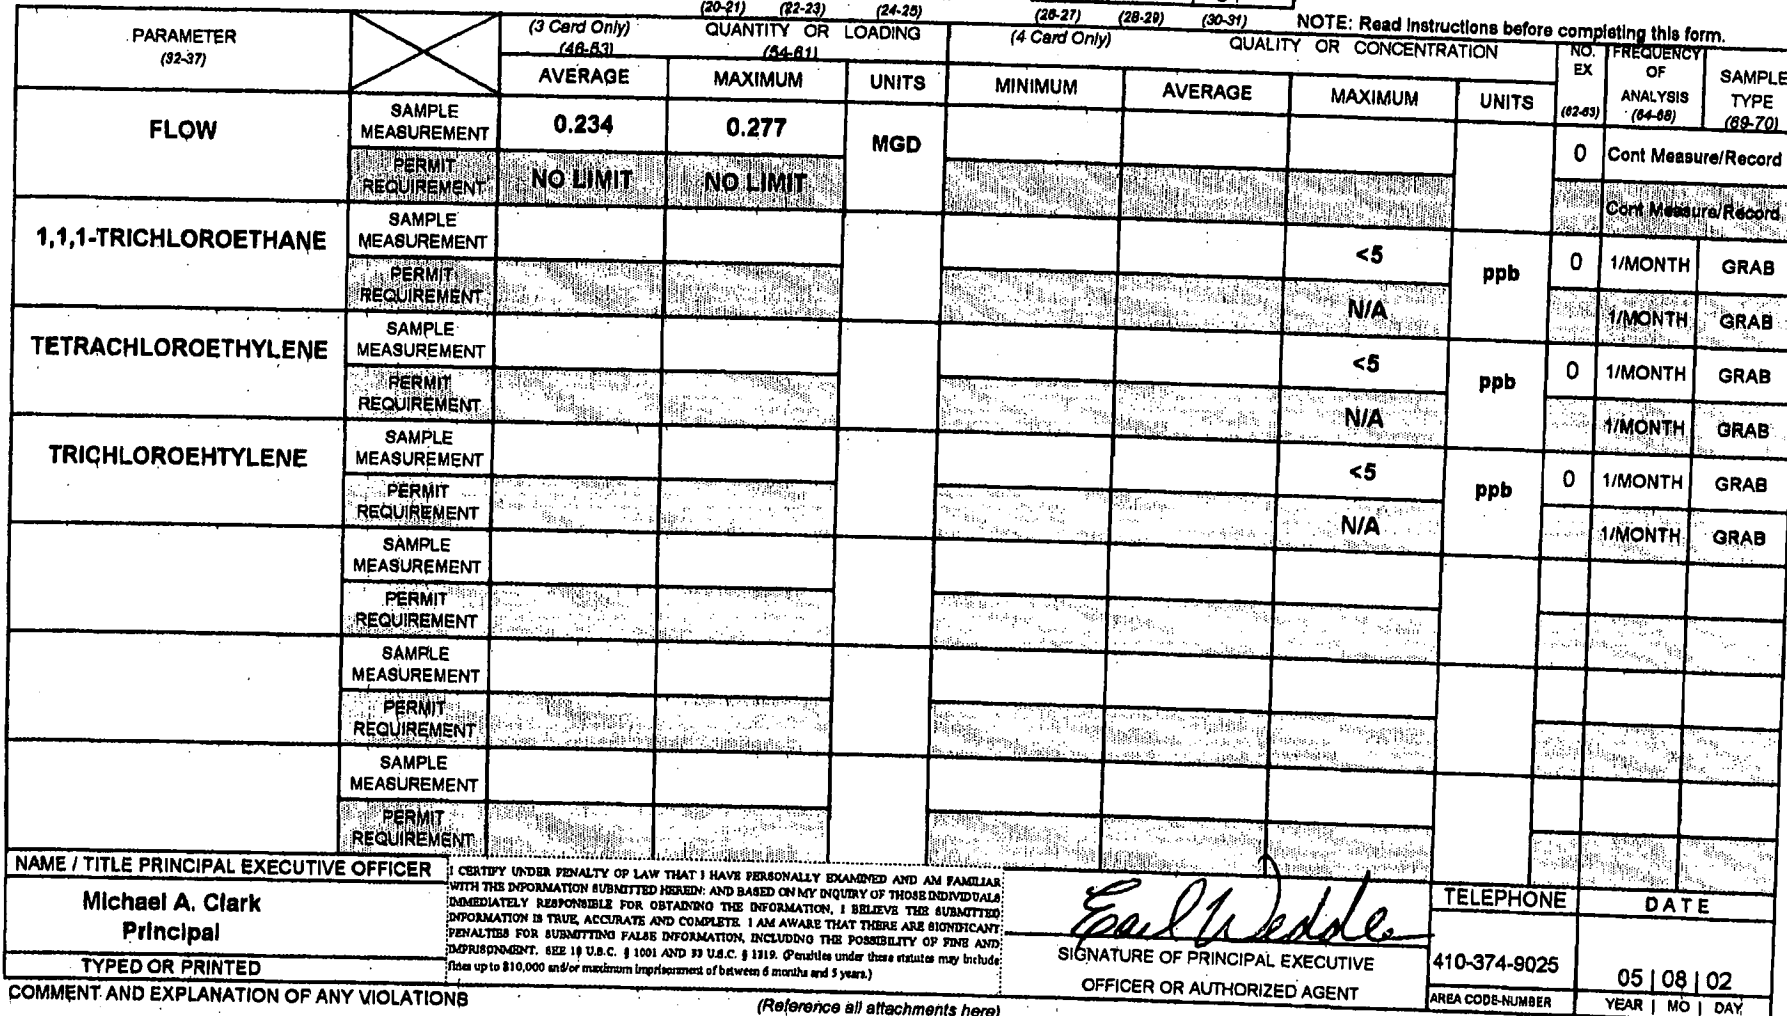 (20-21) (22-23) (24-25) (26-27) (28-29) (30-31) NOTE: Read Instructions before completing this form.
PARAMETER
(32-37)
(3 Card Only) QUANTITY OR LOADING
(46-53) (54-61)
(4 Card Only) QUALITY OR CONCENTRATION
NO.
EX
(62-63)
FREQUENCY
OF
ANALYSIS
(64-68)
SAMPLE
TYPE
(69-70)
AVERAGE MAXIMUM UNITS MINIMUM AVERAGE MAXIMUM UNITS
FLOW
SAMPLE
MEASUREMENT 0.234 0.277 MGD 0 Cont Measure/Record
PERMIT
REQUIREMENT NO LIMIT NO LIMIT Cont Measure/Record
1,1,1-TRICHLOROETHANE
SAMPLE
MEASUREMENT <5 ppb 0 1/MONTH GRAB
PERMIT
REQUIREMENT N/A 1/MONTH GRAB
TETRACHLOROETHYLENE
SAMPLE
MEASUREMENT <5 ppb 0 1/MONTH GRAB
PERMIT
REQUIREMENT N/A 1/MONTH GRAB
TRICHLOROEHTYLENE
SAMPLE
MEASUREMENT <5 ppb 0 1/MONTH GRAB
PERMIT
REQUIREMENT N/A 1/MONTH GRAB
SAMPLE
MEASUREMENT
PERMIT
REQUIREMENT
SAMPLE
MEASUREMENT
PERMIT
REQUIREMENT
SAMPLE
MEASUREMENT
PERMIT
REQUIREMENT
NAME / TITLE PRINCIPAL EXECUTIVE OFFICER
Michael A. Clark
Principal
TYPED OR PRINTED
I CERTIFY UNDER PENALTY OF LAW THAT I HAVE PERSONALLY EXAMINED AND AM FAMILIAR
WITH THE INFORMATION SUBMITTED HEREIN: AND BASED ON MY INQUIRY OF THOSE INDIVIDUALS
IMMEDIATELY RESPONSIBLE FOR OBTAINING THE INFORMATION, I BELIEVE THE SUBMITTED
INFORMATION IS TRUE, ACCURATE AND COMPLETE. I AM AWARE THAT THERE ARE SIGNIFICANT
PENALTIES FOR SUBMITTING FALSE INFORMATION, INCLUDING THE POSSIBILITY OF FINE AND
IMPRISONMENT. SEE 18 U.S.C. § 1001 AND 33 U.S.C. § 1319. (Penalties under these statutes may include
fines up to $10,000 and/or maximum imprisonment of between 6 months and 5 years.)
Earl Wedde
SIGNATURE OF PRINCIPAL EXECUTIVE
OFFICER OR AUTHORIZED AGENT
TELEPHONE
410-374-9025
AREA CODE-NUMBER
DATE
05 | 08 | 02
YEAR | MO | DAY
COMMENT AND EXPLANATION OF ANY VIOLATIONS
(Reference all attachments here)